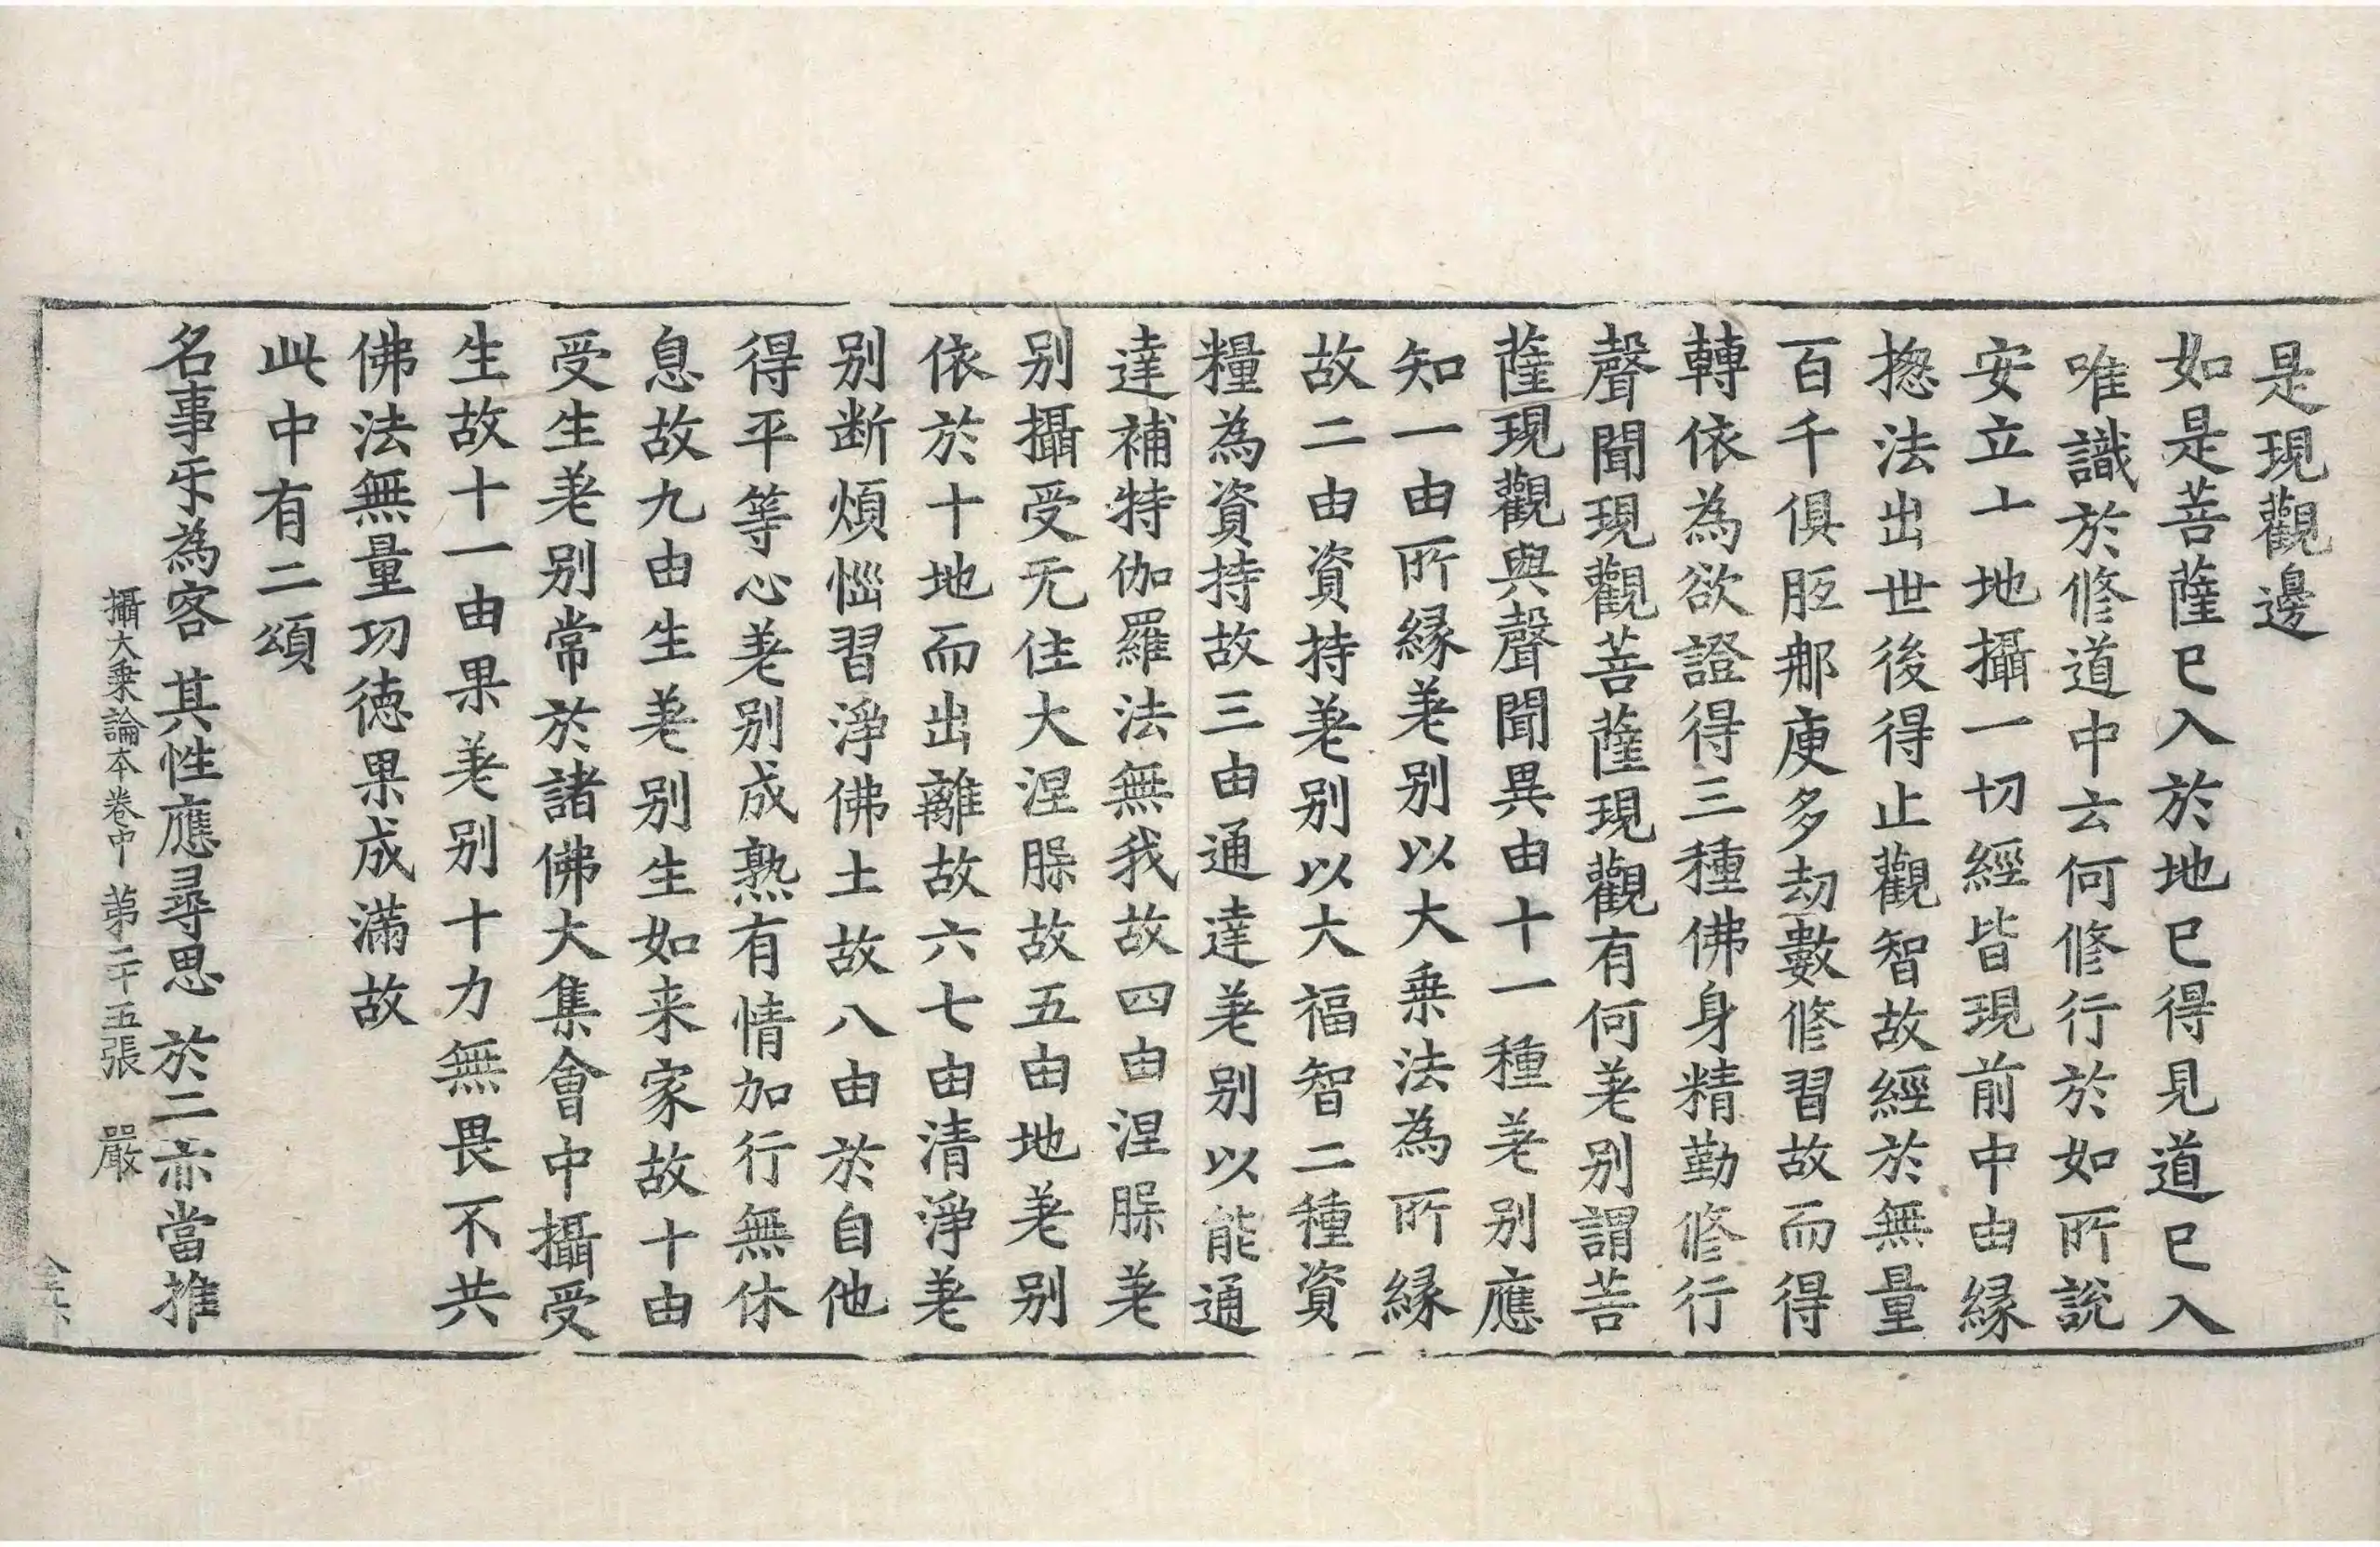 是現觀邊
如是菩薩已入於地已得見道已入
唯識於修道中云何修行於如所說
安立十地攝一切經皆現前中由縁
捴法出世後得止觀智故經於無量
百千俱胝那庾多劫數修習故而得
轉依為欲證得三種佛身精勤修行
聲聞現觀菩薩現觀有何差別謂菩
薩現觀與聲聞異由十一種差別應
知一由所縁差別以大乗法為所縁
故二由資持差別以大福智二種資
糧為資持故三由通達差別以能通
達補特伽羅法無我故四由涅槃差
別攝受无住大涅槃故五由地差別
依於十地而出離故六七由清淨差
別断煩惱習淨佛土故八由於自他
得平等心差別成熟有情加行無休
息故九由生差別生如来家故十由
受生差別常於諸佛大集會中攝受
生故十一由果差別十力無畏不共
佛法無量功徳果成滿故
此中有二頌
名事㸦為客 其性應尋思 於二亦當推
攝大乗論本卷中 苐二十五張 嚴